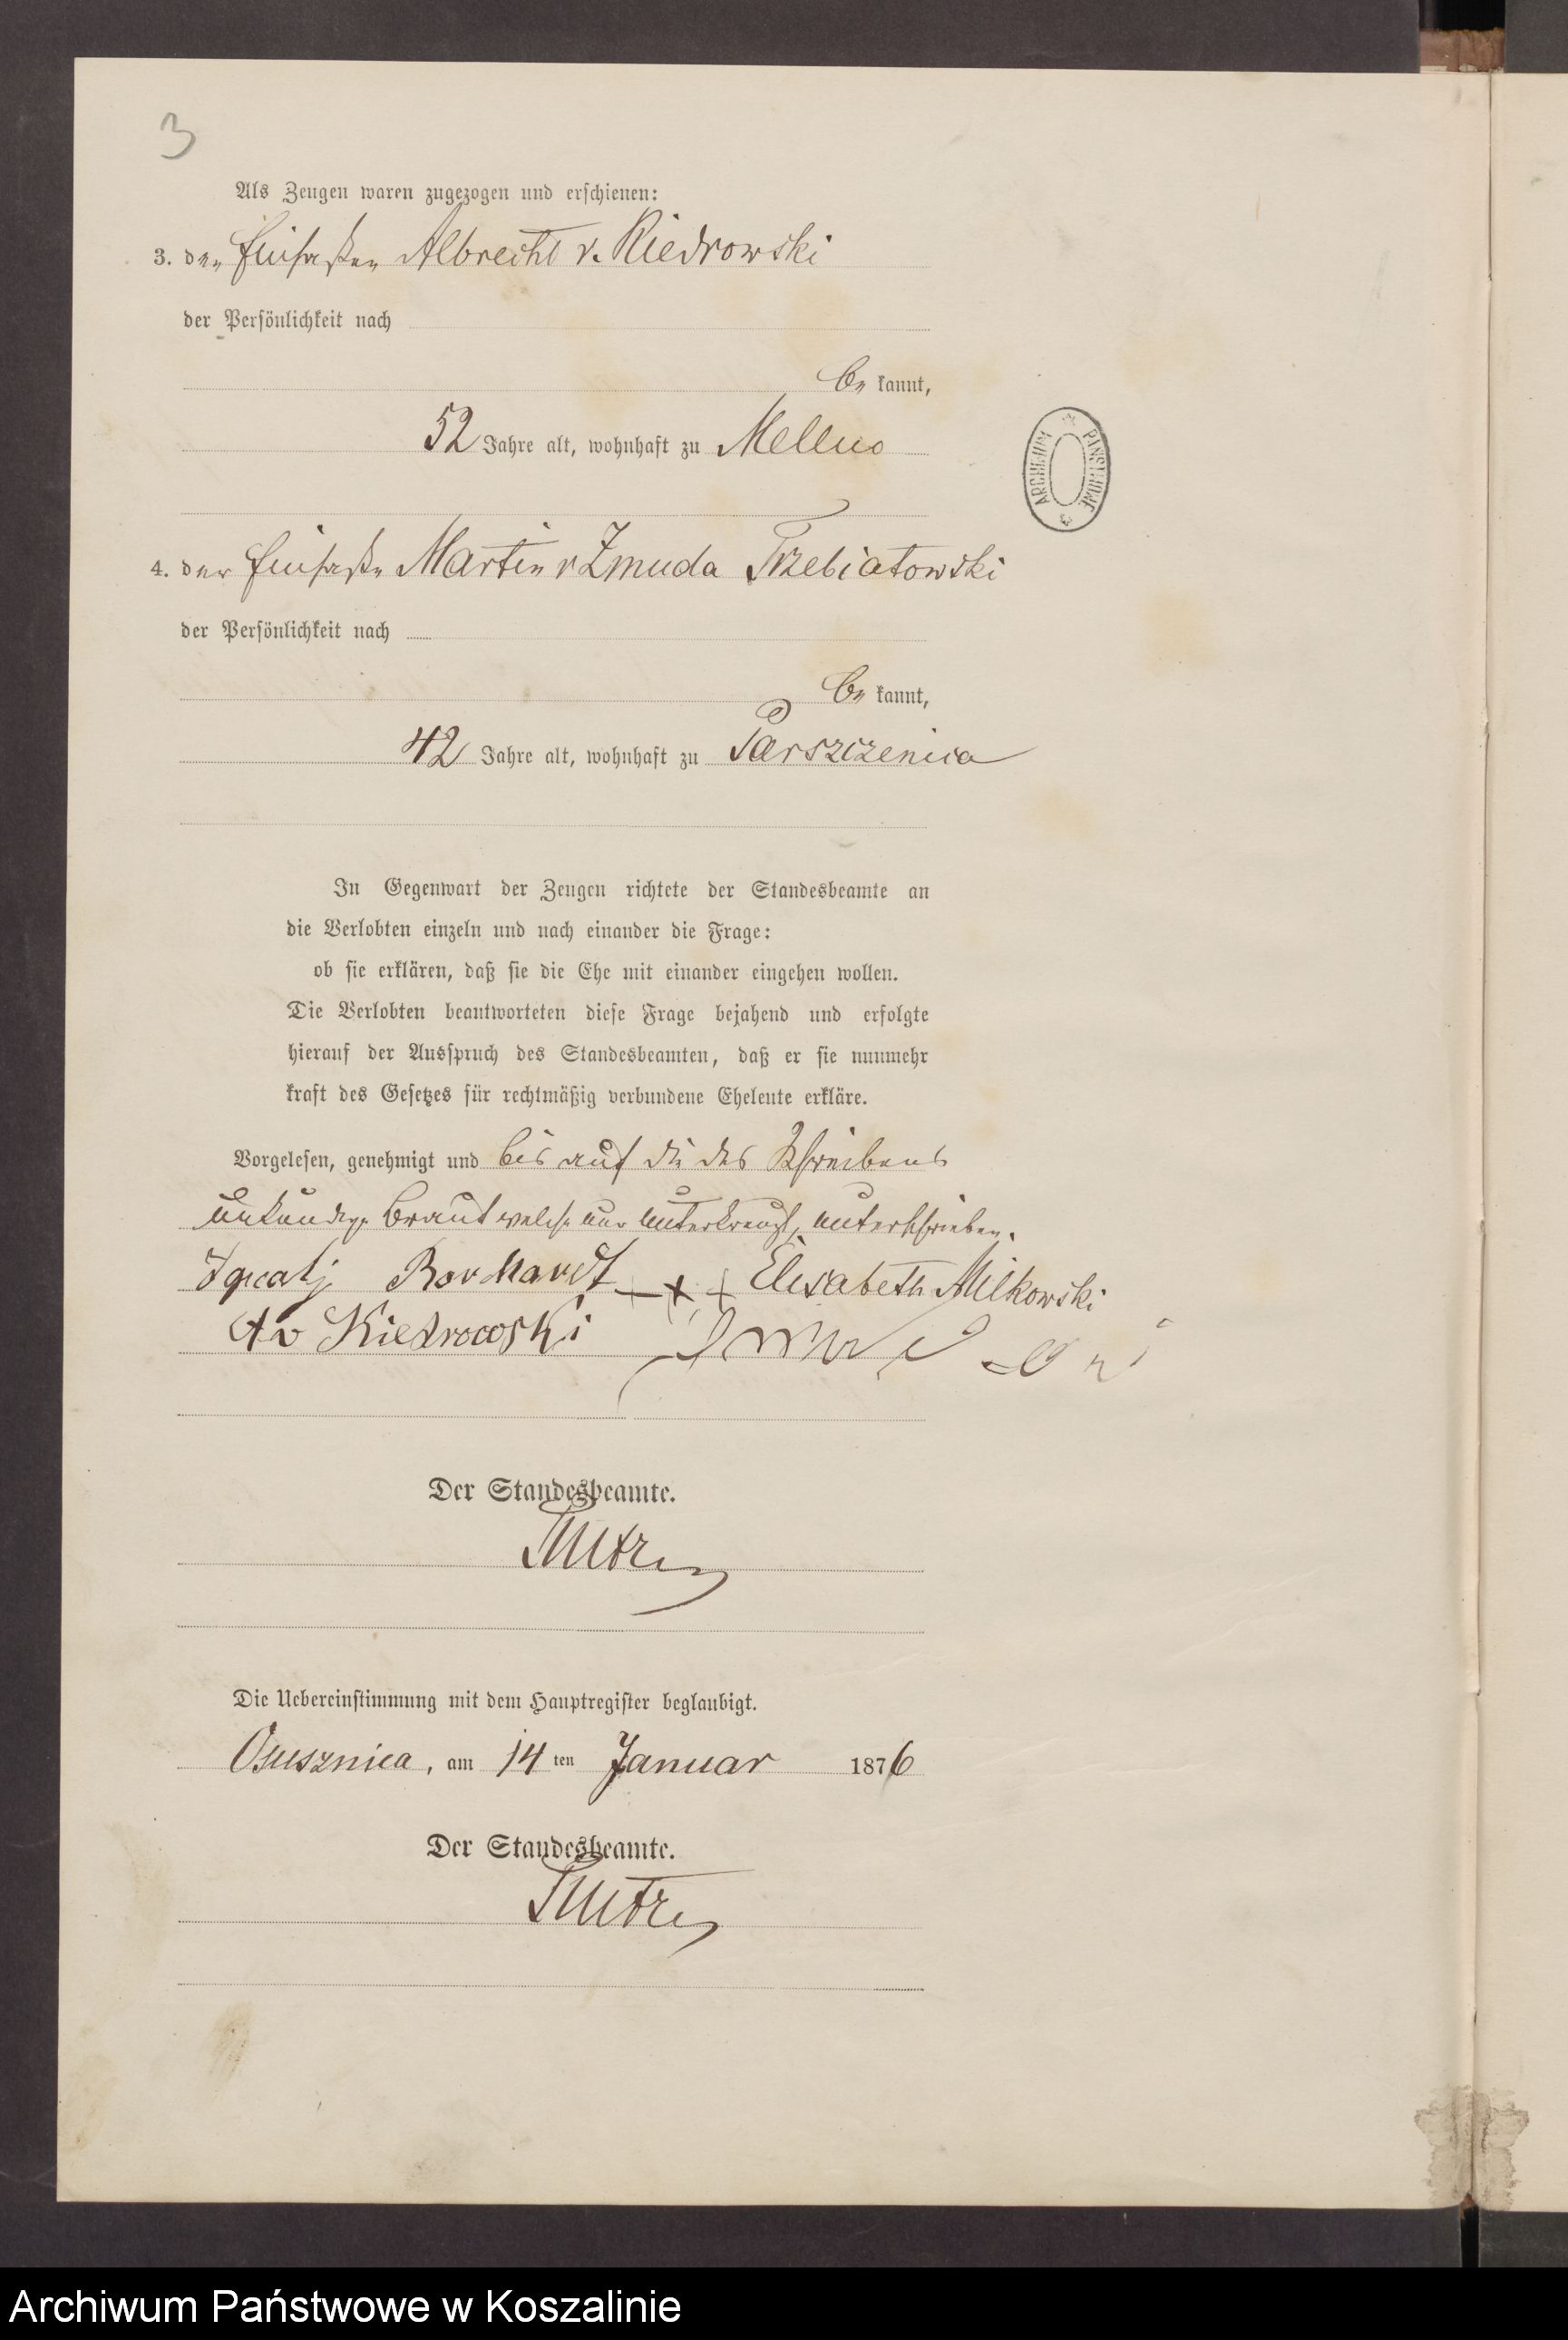 3
Als Zeugen waren zugezogen und erschienen:
3. der Einsassen Albrecht v. Kiedrowski
der Persönlichkeit nach
be kannt,
52 Jahre alt, wohnhaft zu Mellno
4. der Einsasse Martin v Zmuda Trzebiatowski
der Persönlichkeit nach
be kannt,
42 Jahre alt, wohnhaft zu Parszczenica
In Gegenwart der Zeugen richtete der Standesbeamte an
die Verlobten einzeln und nach einander die Frage:
ob sie erklären, daß sie die Ehe mit einander eingehen wollen.
Die Verlobten beantworteten diese Frage bejahend und erfolgte
hierauf der Ausspruch des Standesbeamten, daß er sie nunmehr
kraft des Gesetzes für rechtmäßig verbundene Eheleute erkläre.
Vorgelesen, genehmigt und bis auf die des Schreibens
unkundige Braut welche nur unterkreuzt, unterschrieben.
Borchardt +++ Elisabeth Milkowski
A v Kiedrowski
Der Standesbeamte.
Die Uebereinstimmung mit dem Hauptregister beglaubigt.
Osusznica, am 14 ten Januar 1876
Der Standesbeamte.
ARCHIWUM PAŃSTWOWE
Archiwum Państwowe w Koszalinie